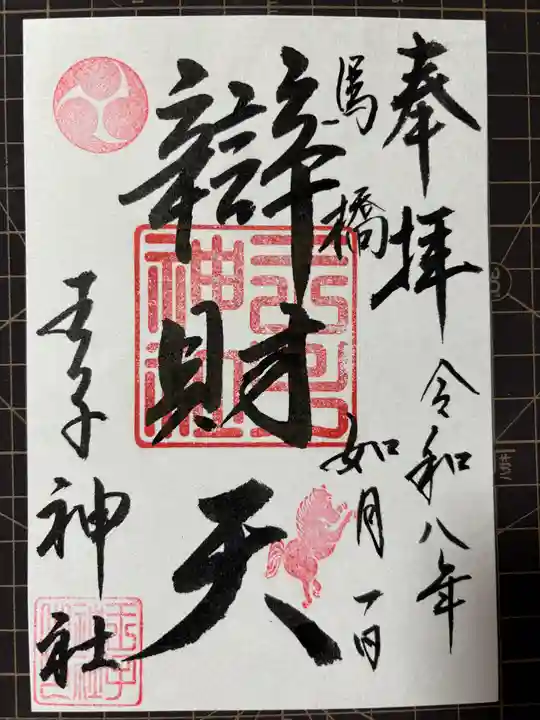 奉拝
令和八年
馬橋
如月一日
辯財天
王子神社
王子神社